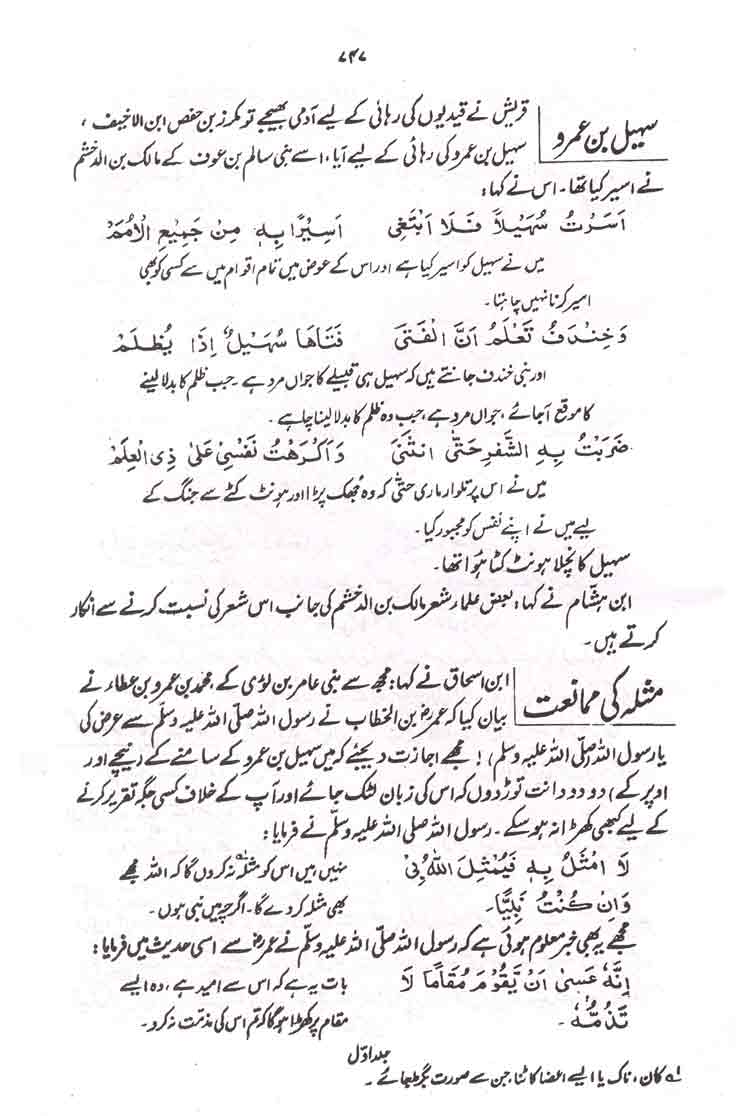 ۷۴۷
سہیل بن عمرو
قریش نے قیدیوں کی رہائی کے لیے آدمی بھیجے تو مکرز بن حفص ابن الاخیف،
سہیل بن عمرو کی رہائی کے لیے آیا، اسے بنی سالم بن عوف کے مالک بن الدخشم
نے اسیر کیا تھا۔ اس نے کہا:
اَسَرْتُ سُهَيْلًا فَلَا اَبْتَغِى اَسِيْرًا بِهٖ مِنْ جَمِيْعِ الْاُمَمْ
میں نے سہیل کو اسیر کیا ہے اور اس کے عوض میں تمام اقوام میں سے کسی کو بھی
اسیر کرنا نہیں چاہتا۔
وَخِنْدَفُ تَعْلَمُ اَنَّ الْفَتَى فَتَاهَا سُهَيْلٌ اِذَا يُظْلَمْ
اور بنی خندف جانتے ہیں کہ سہیل ہی قبیلے کا جواں مرد ہے۔ جب ظلم کا بدلا لینے
کا موقع آجائے، جواں مرد ہے، جب وہ ظلم کا بدلا لینا چاہے۔
ضَرَبْتُ بِهِ الشَّفْرِ حَتَّى انْثَنَى وَاَكْرَهْتُ نَفْسِىْ عَلٰى ذِى الْعِلَمْ
میں نے اس پر تلوار ماری حتّٰی کہ وہ جھک پڑا اور ہونٹ کٹے سے جنگ کے
لیے میں نے اپنے نفس کو مجبور کیا۔
سہیل کا نچلا ہونٹ کٹا ہوا تھا۔
ابن ہشام نے کہا: بعض علمار شعر مالک بن الدخشم کی جانب اس شعر کی نسبت کرنے سے انکار
کرتے ہیں۔
مثلہ کی ممانعت
ابن اسحاق نے کہا: مجھ سے بنی عامر بن لوئ کے، محمد بن عمرو بن عطاء نے
بیان کیا کہ عمرؓ بن الخطاب نے رسول اللہ صلّی اللہ علیہ وسلّم سے عرض کی
یا رسول اللہ (صلّی اللہ علیہ وسلم)! مجھے اجازت دیجئے کہ میں سہیل بن عمرو کے سامنے کے (نیچے اور
اوپر کے) دو دو دانت توڑ دوں کہ اس کی زبان لٹک جائے اور آپ کے خلاف کسی جگہ تقریر کرنے
کے لیے کبھی کھڑا نہ ہو سکے۔ رسول اللہ صلی اللہ علیہ وسلّم نے فرمایا:
لَا اُمَثِّلُ بِهٖ فَيُمَثِّلَ اللّٰهُ بِىْ نہیں میں اس کو مثلہ نہ کروں گا کہ اللہ مجھے
وَاِنْ كُنْتُ نَبِيًّا۔ بھی مثلہ کر دے گا۔ اگرچہ میں نبی ہوں۔
مجھے یہ بھی خبر معلوم ہوئی ہے کہ رسول اللہ صلّی اللہ علیہ وسلّم نے عمرؓ سے اسی حدیث میں فرمایا:
اِنَّهٗ عَسٰى اَنْ يَقُوْمَ مُقَامًا لَا بات یہ ہے کہ اس سے امید ہے، وہ ایسے
تَذُمُّهٗ۔ مقام پر کھڑا ہو گا کہ تم اس کی مذمّت نہ کرو۔
جلد اوّل
لہ کان، ناک یا ایسے اعضا کاٹنا، جن سے صورت بگڑ جائے۔